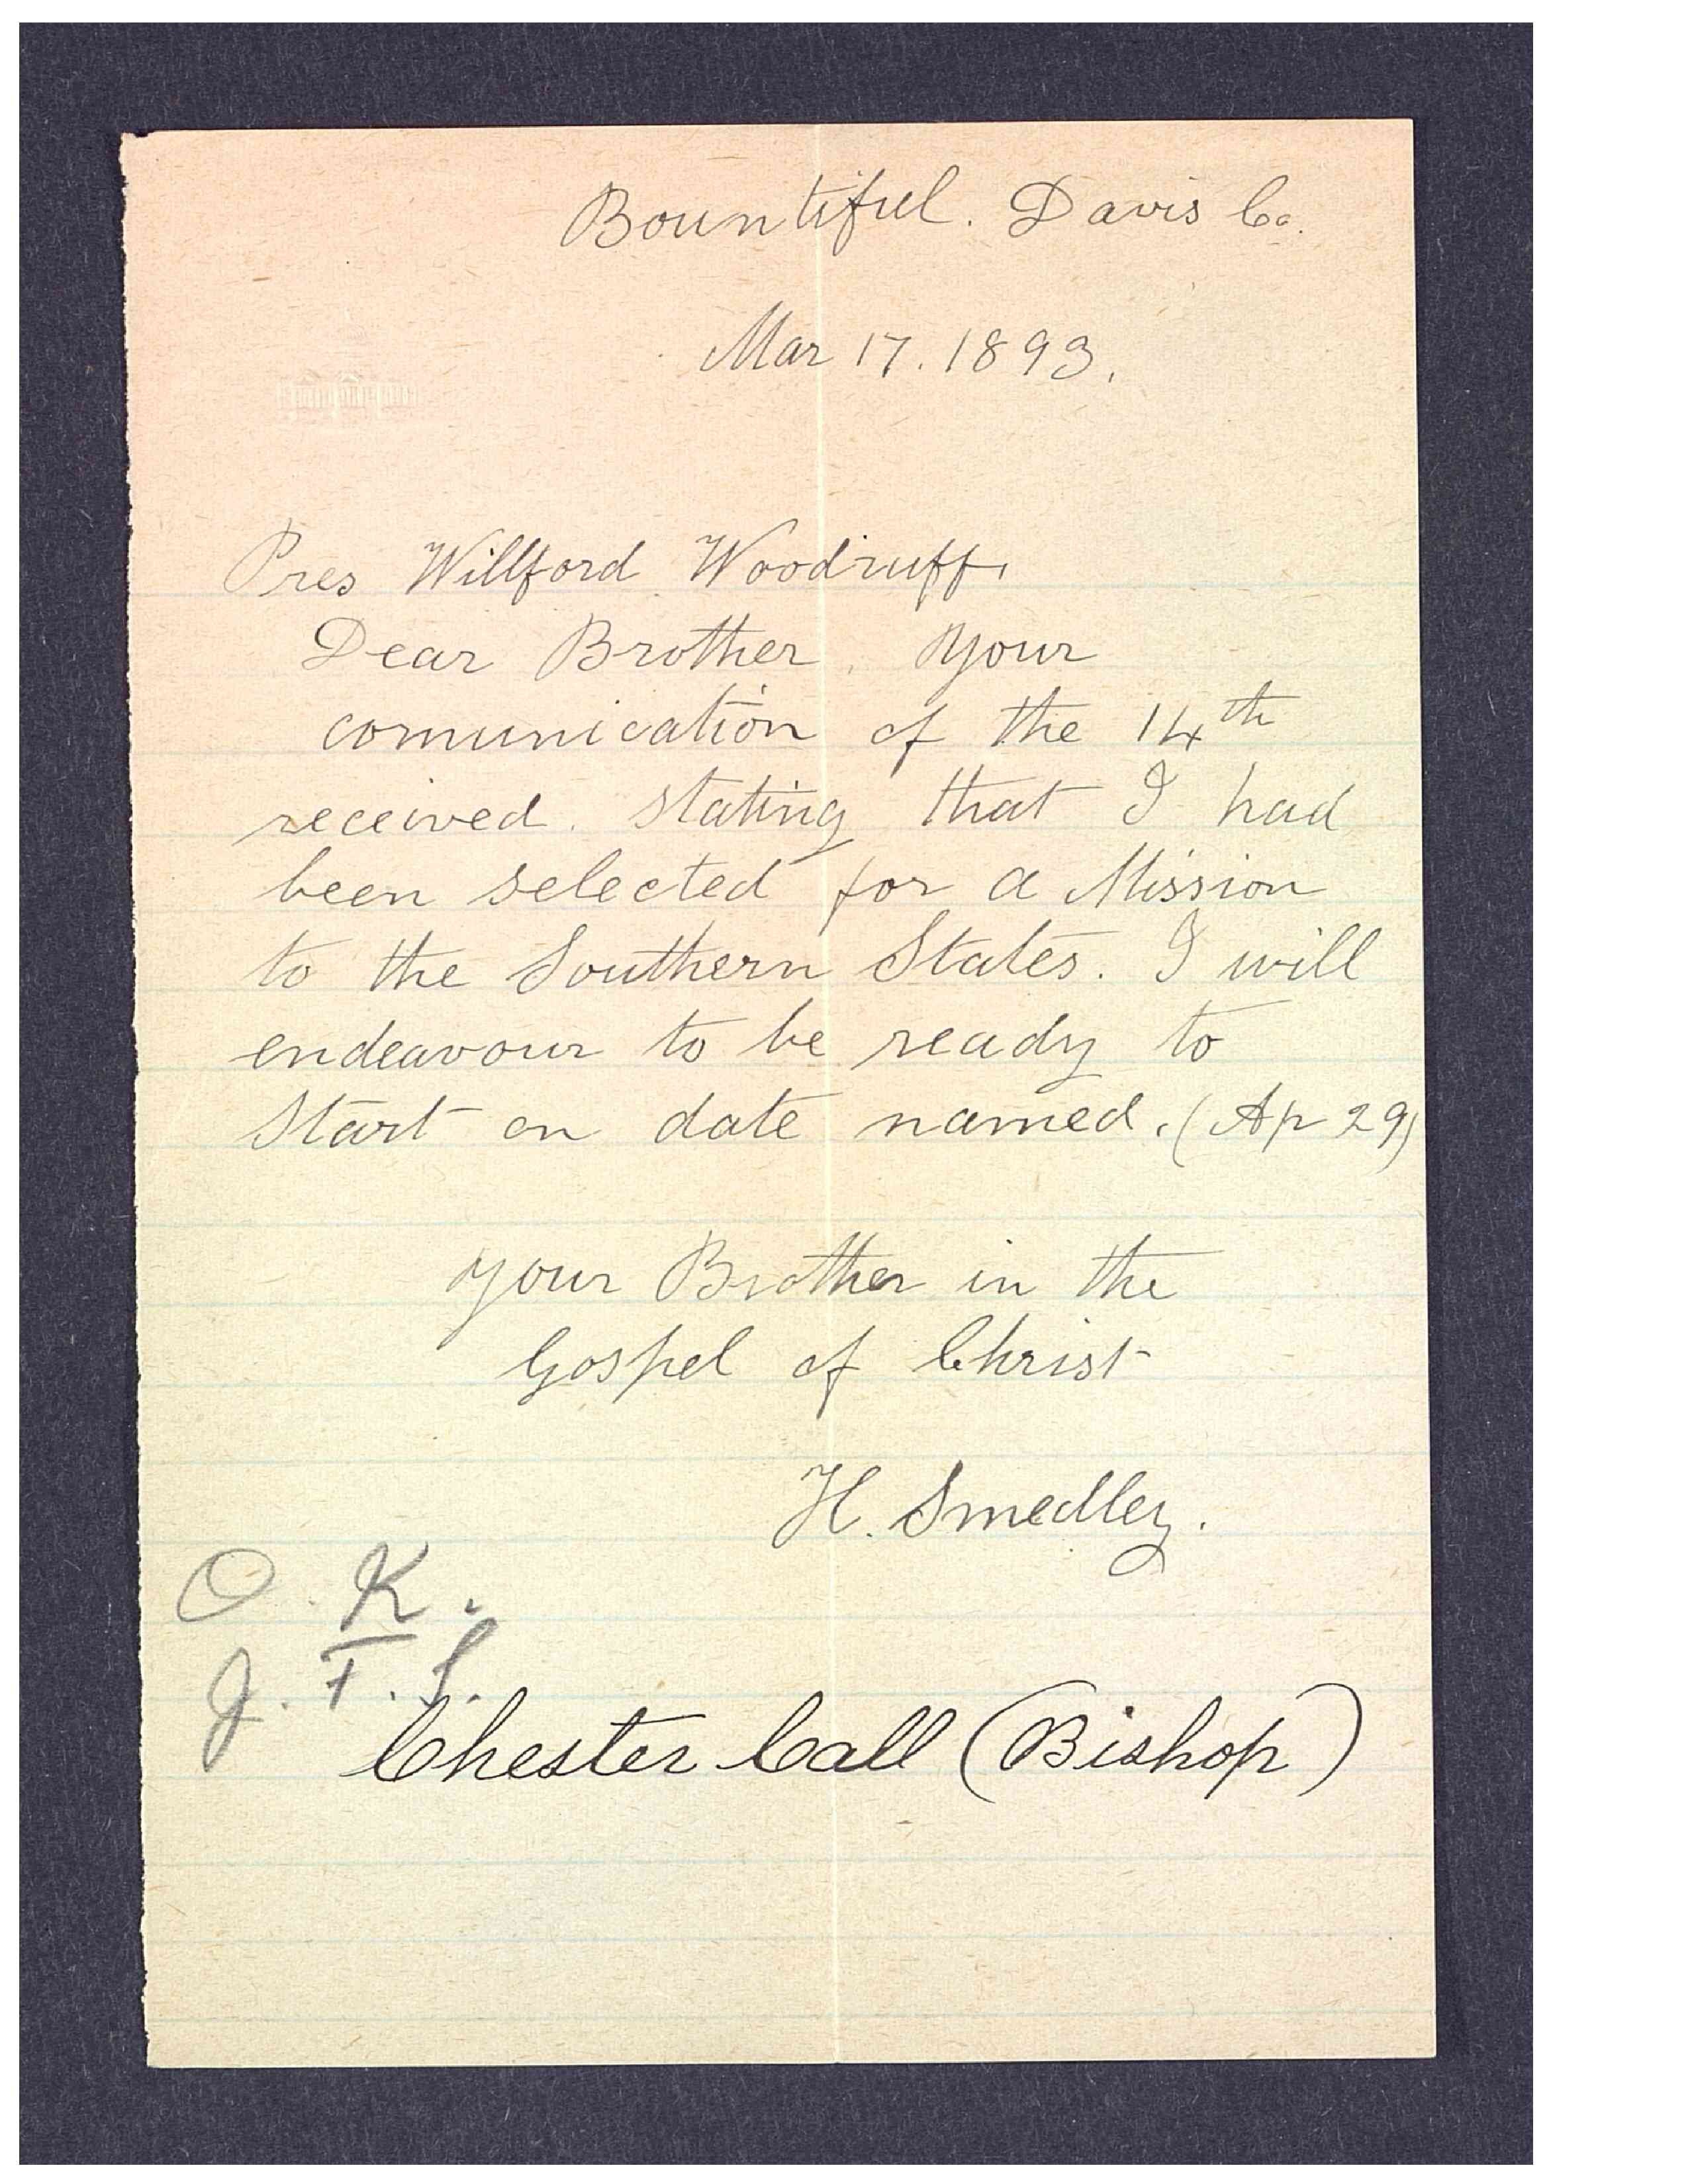 Bountiful. Davis Co.
Mar 17. 1893.
Pres Willford Woodruff,
Dear Brother. Your
comunication of the 14th
received. stating that I had
been selected for a Mission
to the Southern States. I will
endeavour to be ready to
start on date named. (Ap 29)
your Brother in the
Gospel of Christ
H. Smedley.
O. K.
J. F. S.
Chester Call (Bishop)